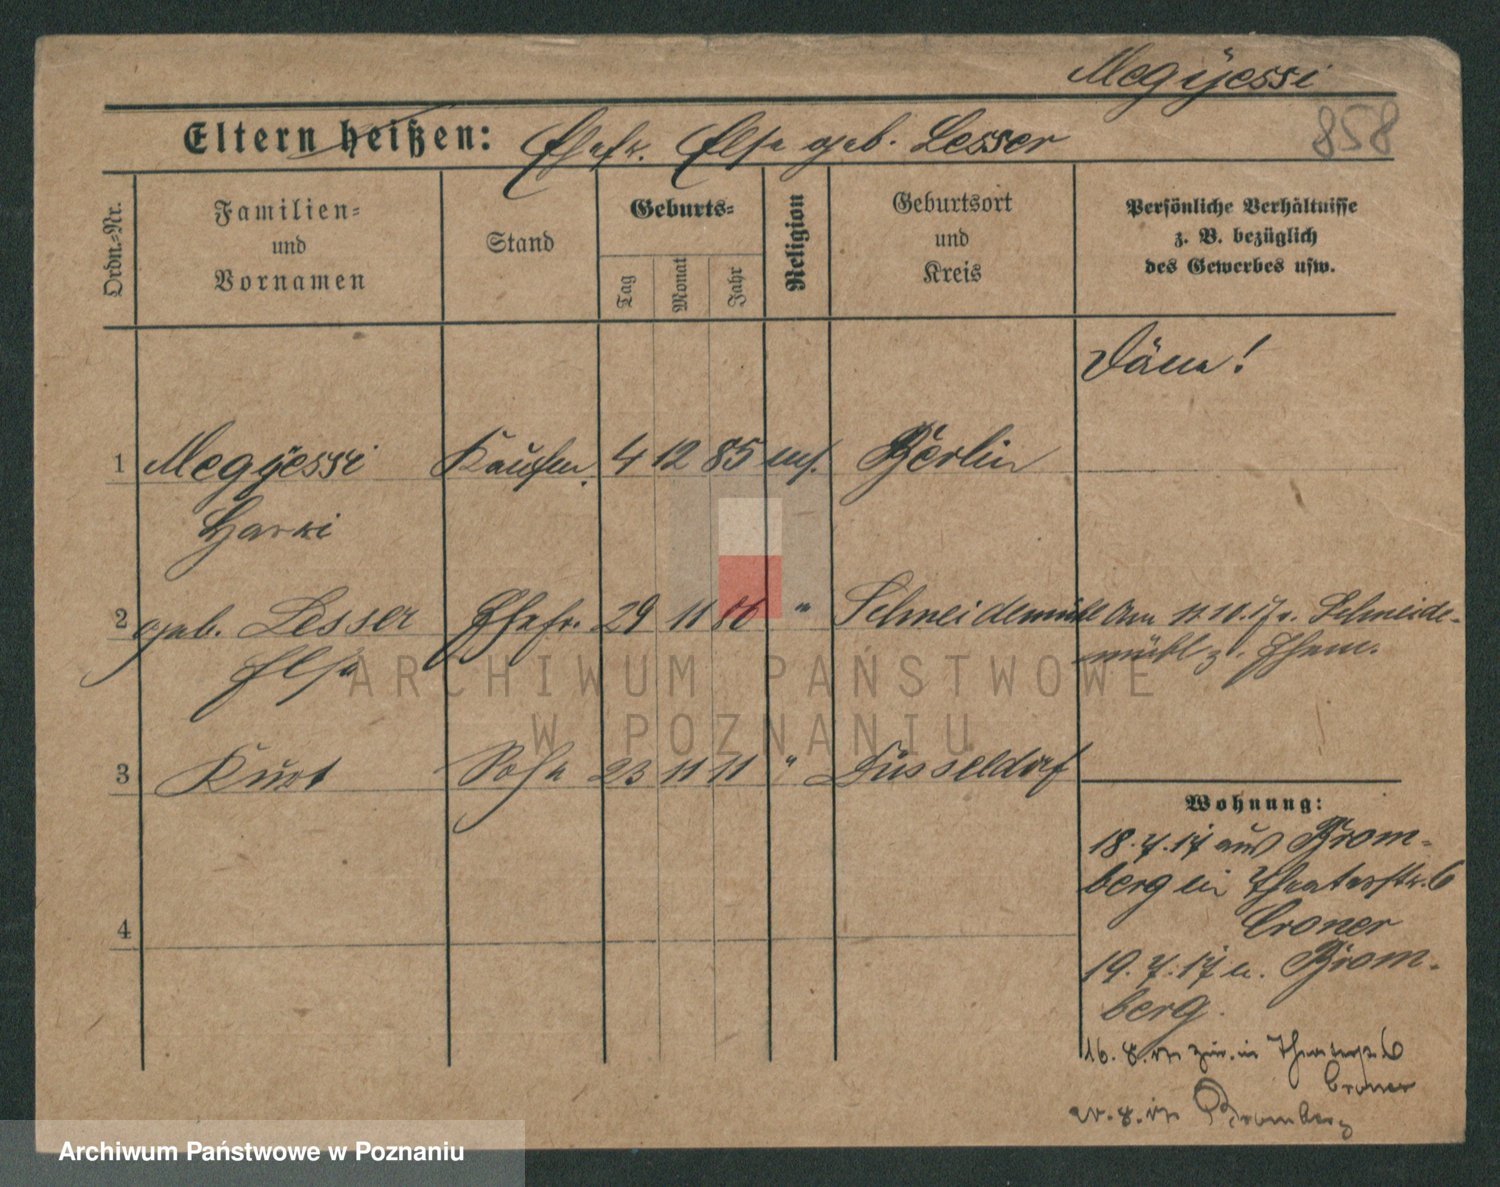 Megÿessi
858
Eltern heißen: Ehefr. Elsa geb. Lesser
Ordn.=Nr.
Familien=
und
Vornamen
Stand
Geburts=
Tag
Monat
Jahr
Religion
Geburtsort
und
Kreis
Persönliche Verhältnisse
z. B. bezüglich
des Gewerbes usw.
Däne!
1 Megÿessi Kaufm. 4 12 85 Berlin
Harri
2 geb. Lesser Ehefr. 29 11 86 " Schneidemühl Am 11.10.17 v. Schneide-
Elsa mühl z. Eham.
3 Kurt Sohn 23 11 11 " Düsseldorf
4
Wohnung:
18.7.17 aus Brom-
berg in Theaterstr. 6
Croner
19.7.17 n. Brom-
berg.
16.8.17 zur. in Theaterstr. 6
Croner
8.17 Bromberg
ARCHIWUM PAŃSTWOWE
W POZNANIU
Archiwum Państwowe w Poznaniu